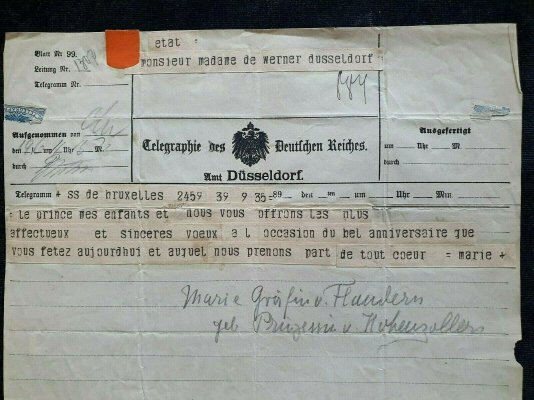 Blatt Nr. 99.
Leitung Nr.
Telegramm Nr.
etat =
monsieur madame de werner dusseldorf
Aufgenommen von
Uhr M.
durch
Telegraphie des Deutschen Reiches.
Amt Düsseldorf.
Ausgefertigt
Uhr M.
durch
Telegramm + ss de bruxelles 2459 39 9 9 35 = 89 den ten um Uhr Min
= le prince mes enfants et nous vous offrons les plus
affectueux et sinceres voeux a l occasion du bel anniversaire que
vous fetez aujourdhui et auquel nous prenons part de tout coeur = marie +
Marie Gräfin v. Flandern
geb Prinzessin v. Hohenzollern